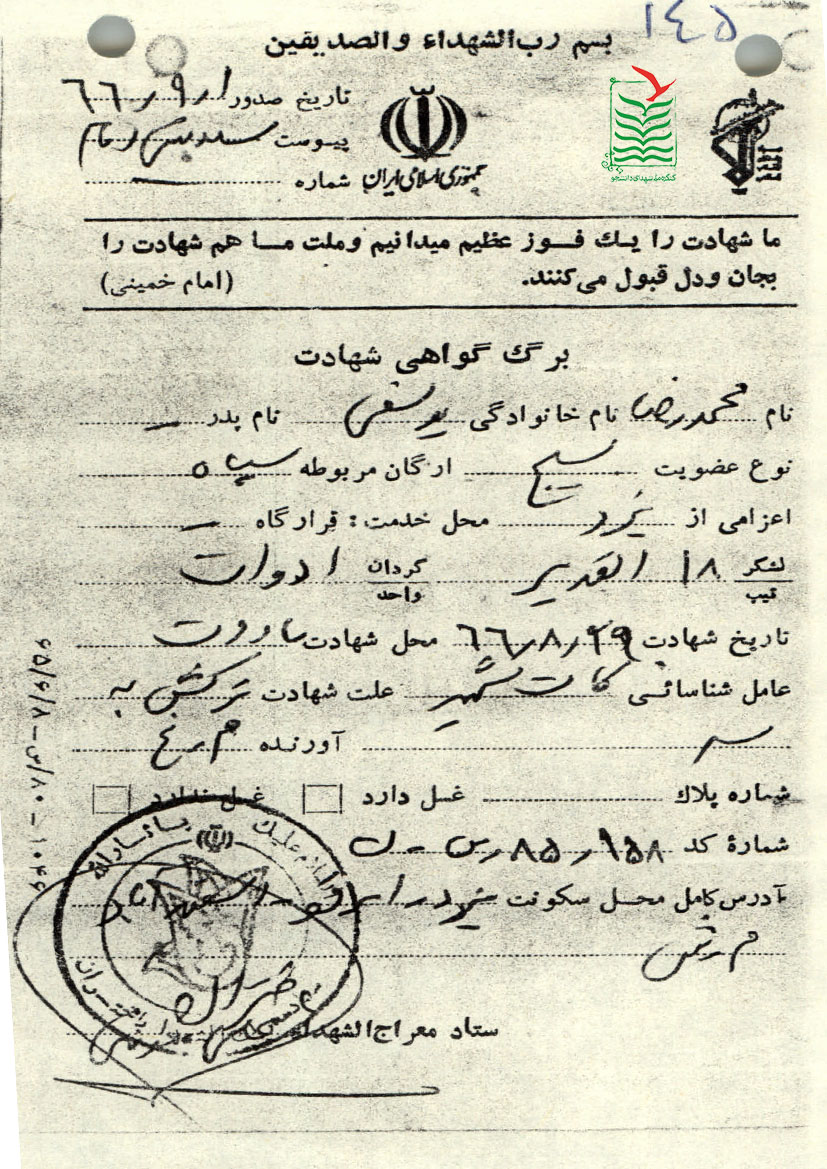 ۱٤۵
بسم رب الشهداء والصدیقین
تاریخ صدور ۶۶٫۹٫۱
پیوست
شماره ـ
جمهوری اسلامی ایران
کنگره ملی شهدای دانشجو
ما شهادت را یک فوز عظیم میدانیم وملت ما هم شهادت را
بجان ودل قبول می‌کنند. (امام خمینی)
برگ گواهی شهادت
نام محمدرضا نام خانوادگی یوسفی نام پدر ـ
نوع عضویت بسیج ارگان مربوطه سپاه
اعزامی از یزد محل خدمت: قرارگاه ـ
لشکر تیپ ۱۸ الغدیر گردان واحد ادوات
تاریخ شهادت ۶۶٫۸٫۲۹ محل شهادت
عامل شناسائی علت شهادت ترکش به
سر آورنده
شماره پلاک غسل دارد غسل ندارد
شمارهٔ کد ۹۵۸٫۸۵٫س
آدرس کامل محل سکونت یزد
ستاد معراج الشهداء
۱۰۴۶ – ۸۰/س – ۶۵/۶/۸
السلام علیک یا ثارالله